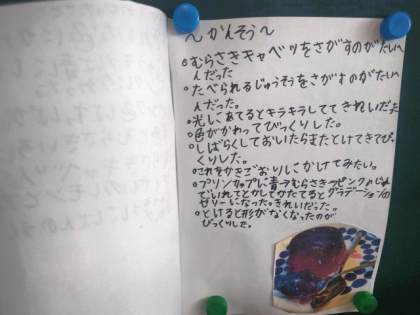 〜かんそう〜
○むらさきキャベツをさがすのがたいへ
んだった
○たべられるじゅうそうをさがすのがたいへ
んだった。
○光にあてるとキラキラしててきれいだった
○色がかわってびっくりした。
○しばらくしておいたらまたとけてきてびっ
くりした。
○これをかきごおりにかけてみたい。
○プリンカップに青→むらさき→ピンクのじゅん
でいれてとかしてかたてるとグラデーションの
ゼリーになった。きれいだった。
○とけると形がなくなったのが
びっくりした。